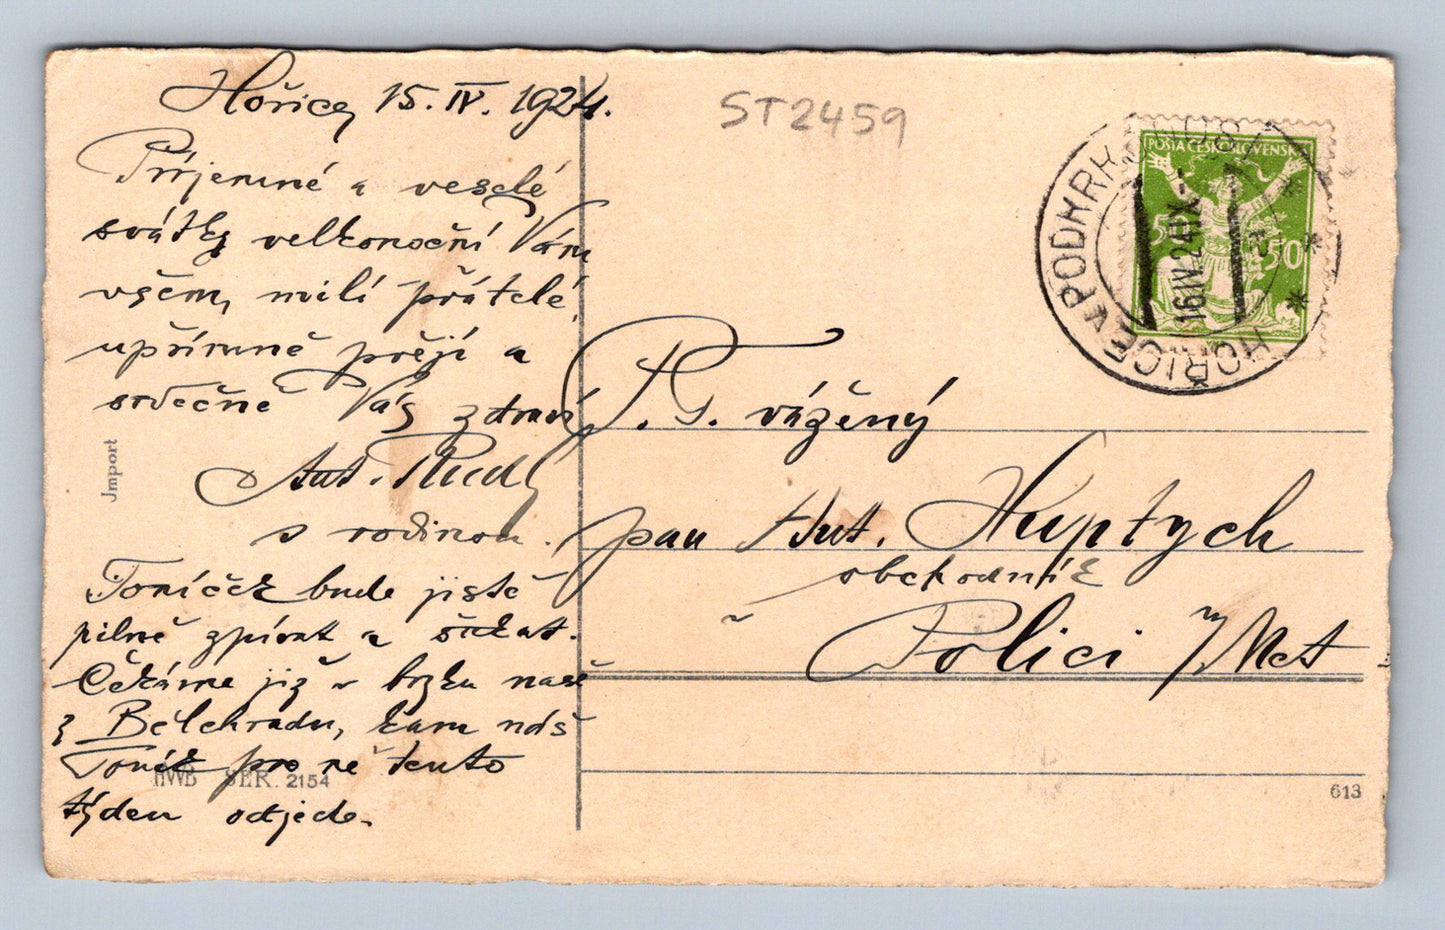 Hořice, 15. IV. 1924.
Příjemné a veselé
svátky velkonoční Vám
všem, milí přátelé,
upřímně přeji a
srdečně Vás zdraví
Ant. Rudl
s rodinou.
Toníček bude jistě
pilně zpívat a
Čekáme již v brzku naše
z Bělehradu, kam náš
Toník pro ně tento
týden odjede.
Jmport
HWB SER. 2154
ST2459
POŠTA ČESKOSLOVENSKÁ
50 50
HOŘICE V PODKRK
16 IV 24 IX
P. T. vážený
pan Ant. Kuptych
obchodník
v Polici n/Met
613